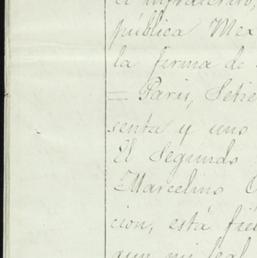 el infrascrito,
pública Mex
la firma de
= Paris, Setie
senta y uno
El segundo
Marcelino
cion, está fie
que mi leal